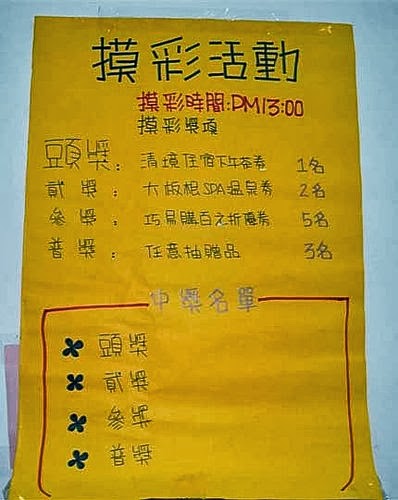 摸彩活動
摸彩時間:PM13:00
摸彩獎項
頭獎: 清境住宿下午茶券 1名
貳獎: 大板根SPA溫泉券 2名
參獎: 巧易購百元折價券 5名
普獎: 任意抽贈品 3名
中獎名單
頭獎
貳獎
參獎
普獎